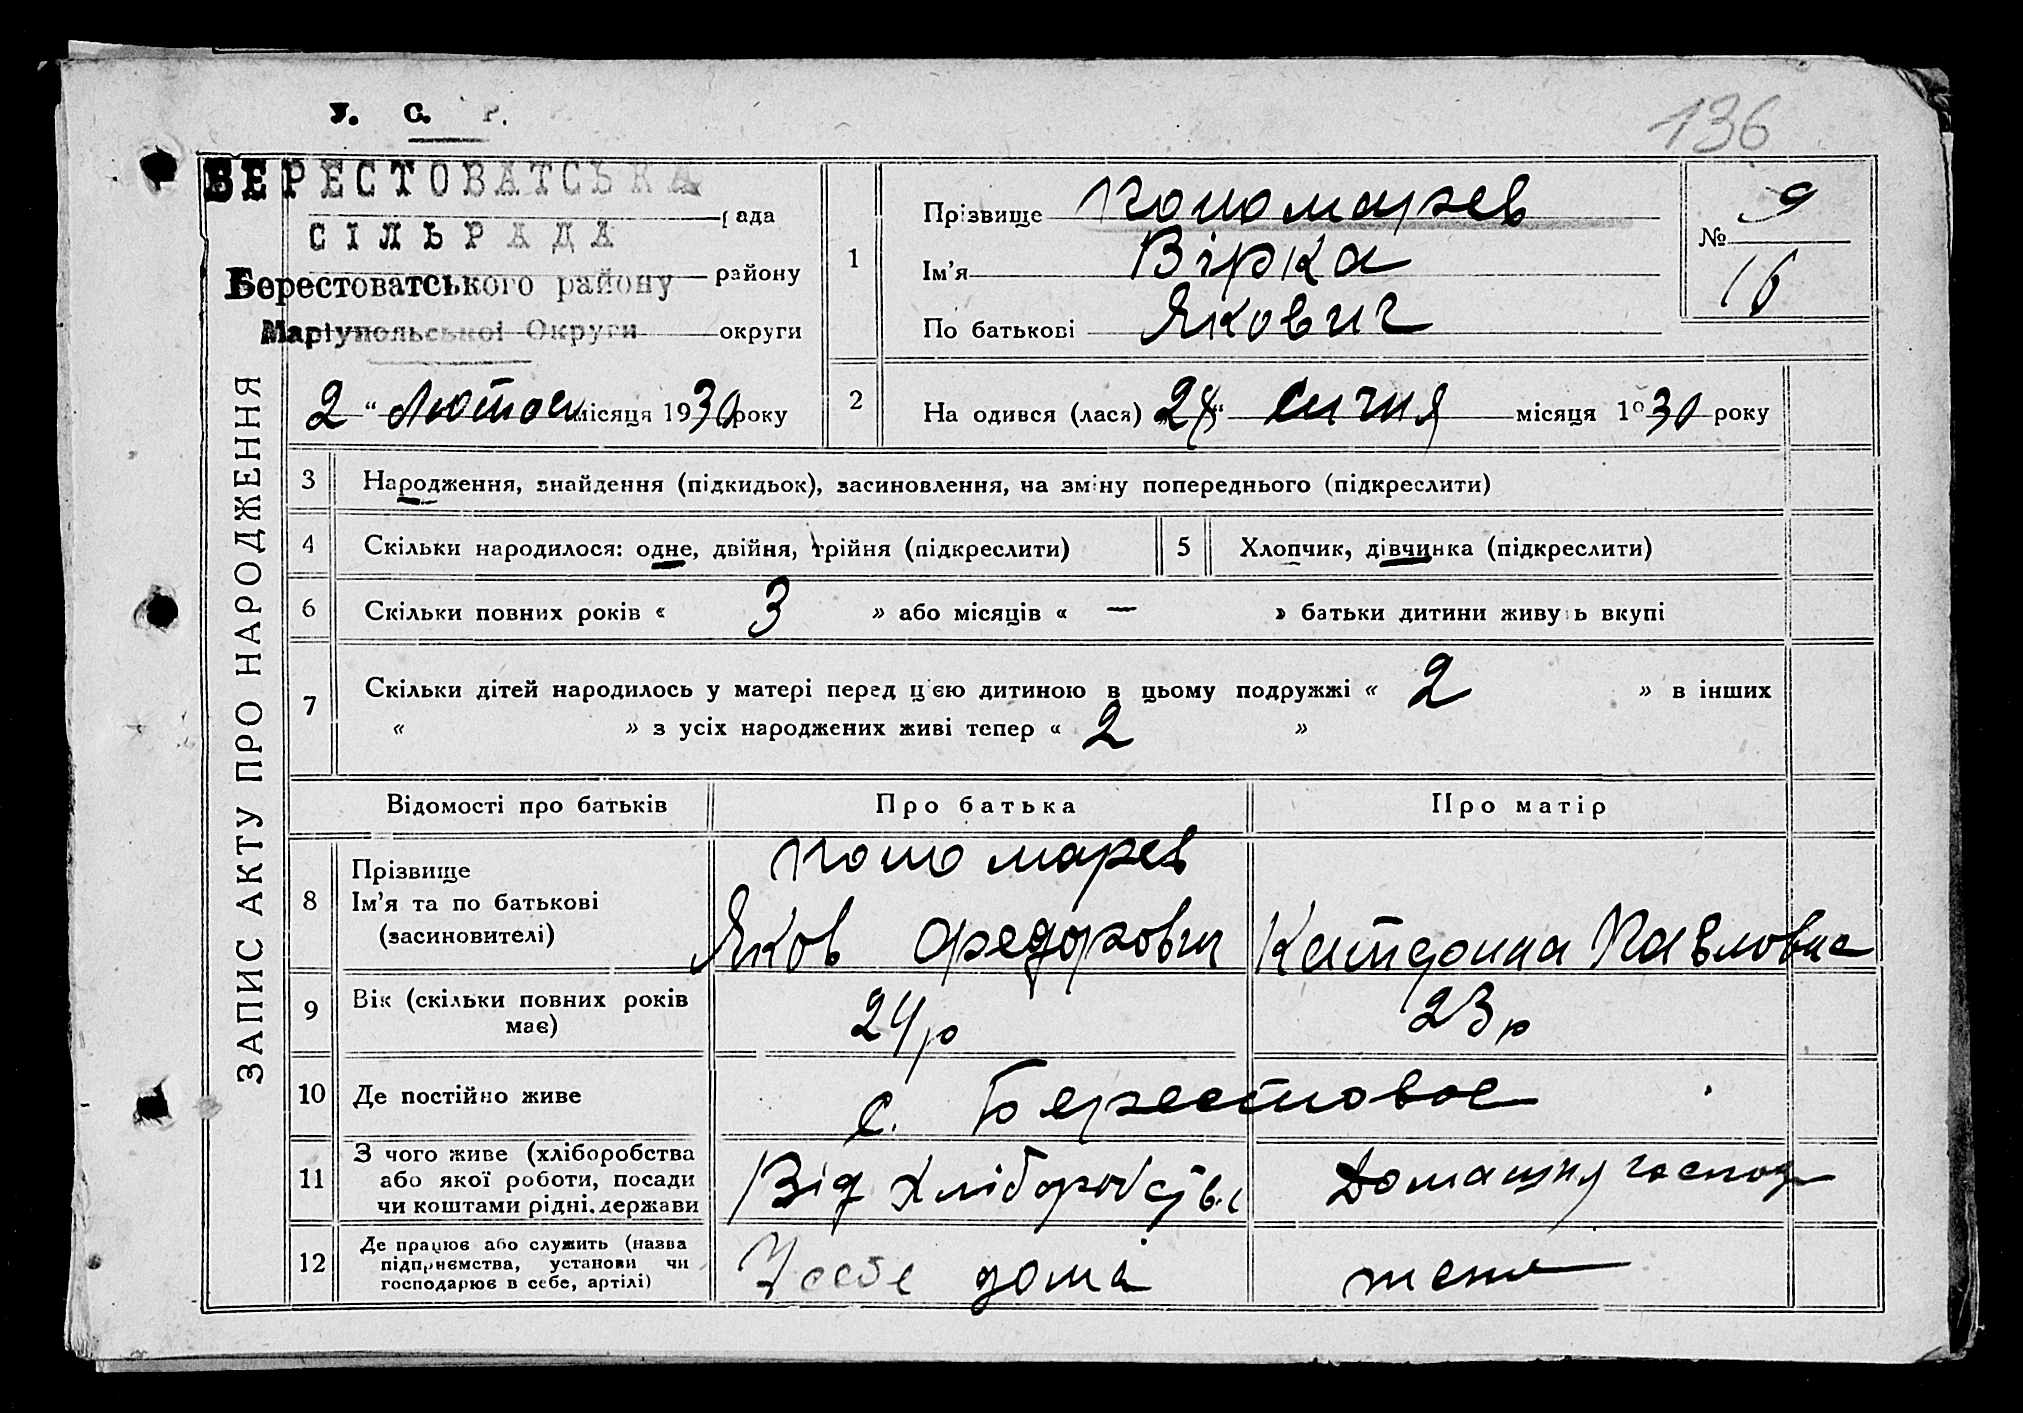 У. С. Р.
136
БЕРЕСТОВАТСЬКА
рада
СІЛЬРАДА
Берестоватського району району
Маріупольської Округи округи
2 " Лютого місяця 1930 року
ЗАПИС АКТУ ПРО НАРОДЖЕННЯ
1
Прізвище Пономарев
Ім'я Вірка
По батькові Якович
№ 9
16
2 На одився (лася) " січня місяця 1930 року
3 Народження, знайдення (підкидьок), засиновлення, на зміну попереднього (підкреслити)
4 Скільки народилося: одне, двійня, трійня (підкреслити)
5 Хлопчик, дівчинка (підкреслити)
6 Скільки повних років « 3 » або місяців « — » батьки дитини живуть вкупі
7 Скільки дітей народилось у матері перед цією дитиною в цьому подружжі « 2 » в інших
« » з усіх народжених живі тепер « 2 »
Відомості про батьків Про батька Про матір
8 Прізвище
Ім'я та по батькові
(засиновителі)
Пономарев
Яков Федорович
Катерина Павловна
9 Вік (скільки повних років
має)
24 р
23 р
10 Де постійно живе
с. Берестовое
11 З чого живе (хліборобства
або якої роботи, посади
чи коштами рідні, держави
Від хліборобства
Домашня господ
12 Де працює або служить (назва
підприємства, установи чи
господарює в себе, артілі)
У себе дома